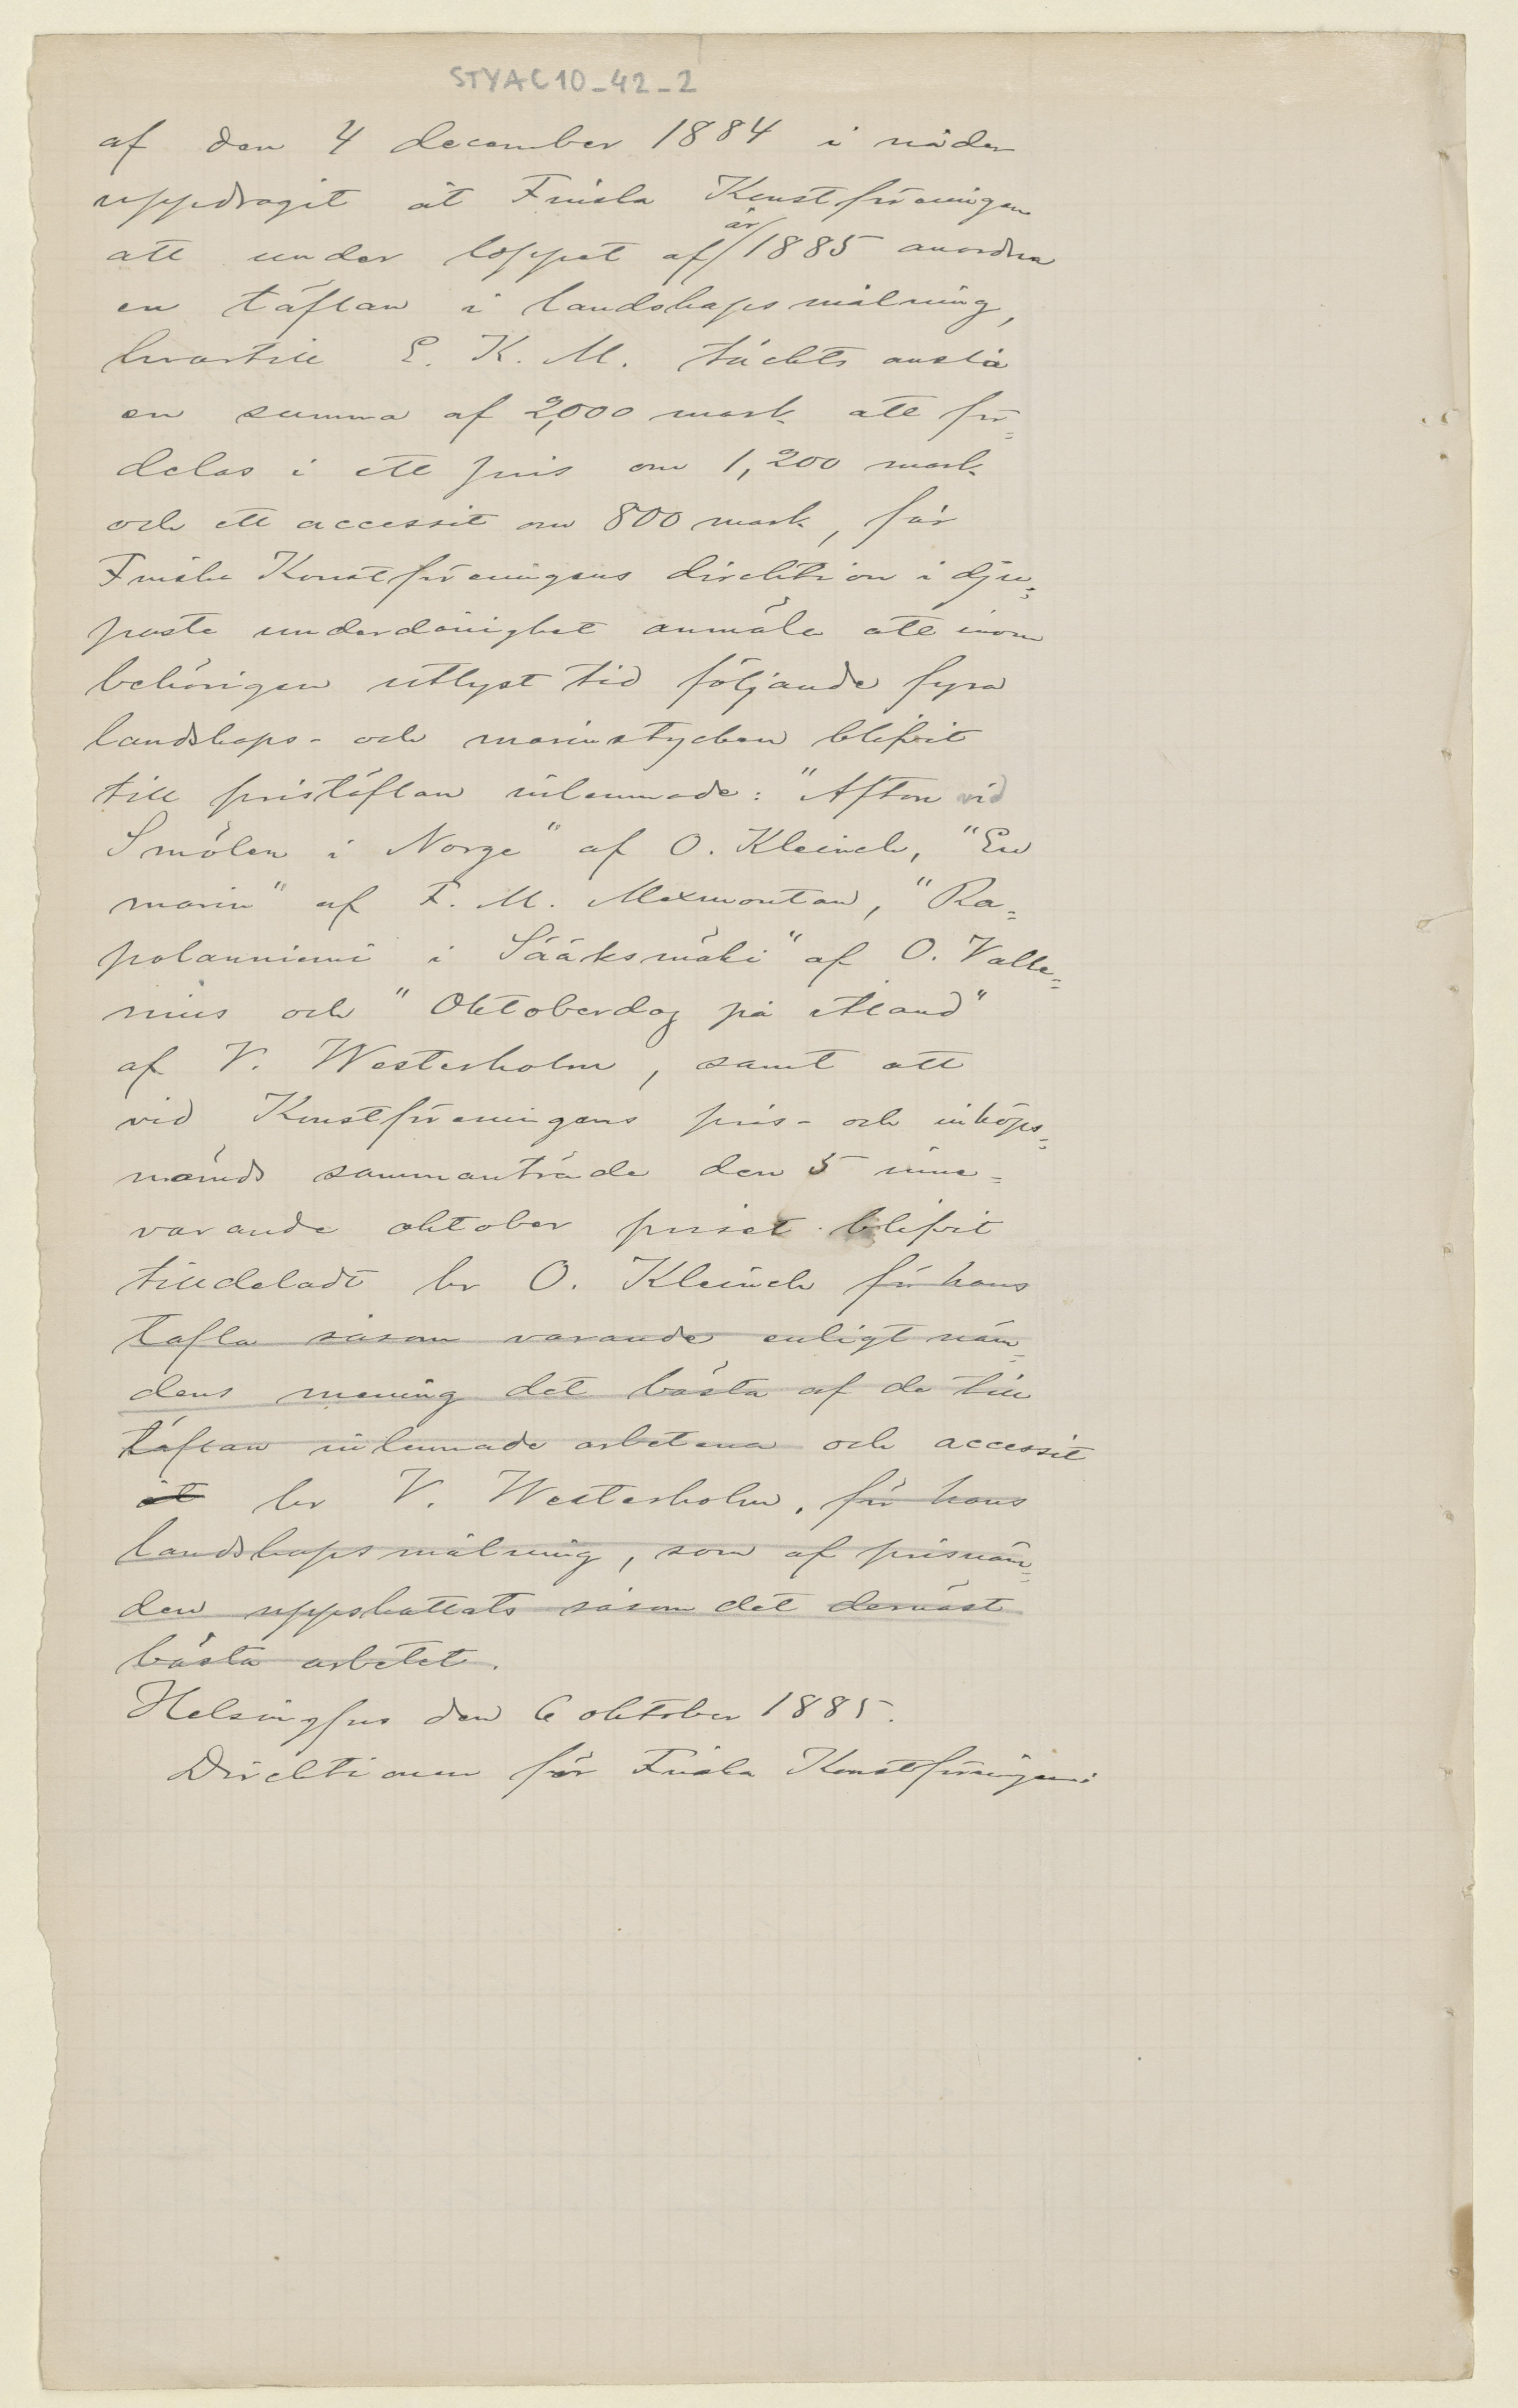 STYAC10_42_2
af den 4 december 1884 i nåder
uppdragit åt Finska Konstföreningen
år
att under loppet af 1885 anordna
en täflan i landskapsmålning,
hvartill E. K. M. täckts anslå
en summa af 2,000 mark att för=
delas i ett pris om 1,200 mark
och ett accessit om 800 mark, får
Finska Konstföreningens direktion i dju=
paste underdånighet anmäla att inom
behörigen utlyst tid följande fyra
landskaps- och marinstycken blifvit
till pristäflan inlemnade: "Afton vid
Smölen i Norge" af O. Kleineh, "En
marin" af F. M. Maxmontan, "Ra=
polanniemi i Sääksmäki" af O. Valle=
nius och "Oktoberdag på Åland"
af V. Westerholm, samt att
vid Konstföreningens pris- och inköps=
nämds sammanträde den 5 inne=
varande oktober priset blifvit
tilldeladt hr O. Kleineh för hans
tafla såsom varande enligt näm=
dens mening det bästa af de till
täflan inlemnade arbetena och accessit
åt hr V. Westerholm, för hans
landskapsmålning, som af prisnäm=
den uppskattats såsom det dernäst
bästa arbetet.
Helsingfors den 6 oktober 1885.
Direktionen för Finska Konstföreningen: